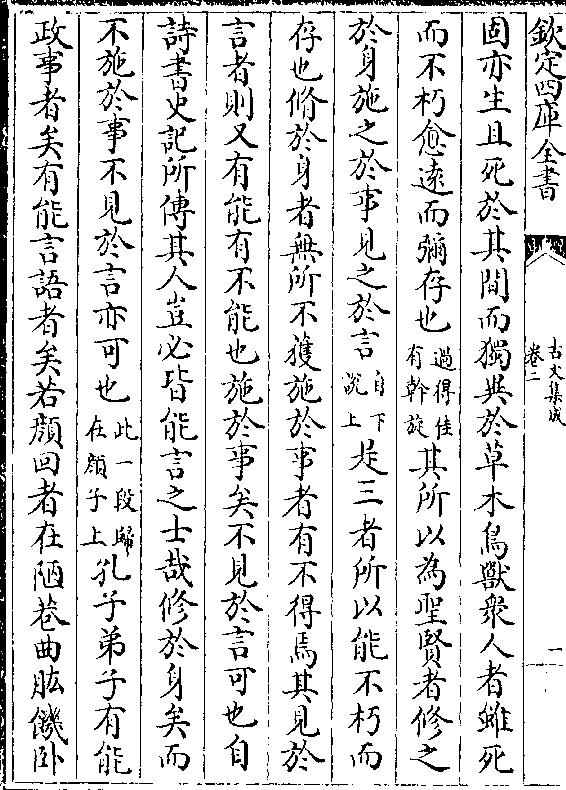 欽定四庫全書
古文集成
卷二
一
固亦生且死於其間而獨異於草木鳥獸衆人者雖死
而不朽愈逺而彌存也過得佳有幹旋其所以為聖賢者修之
於身施之於事見之於言自下説上是三者所以能不朽而
存也脩於身者無所不獲施於事者有不得焉其見於
言者則又有能有不能也施於事矣不見於言可也自
詩書史記所傳其人豈必皆能言之士哉修於身矣而
不施於事不見於言亦可也此一段歸在顔子上孔子弟子有能
政事者矣有能言語者矣若顔回者在陋巷曲肱饑卧